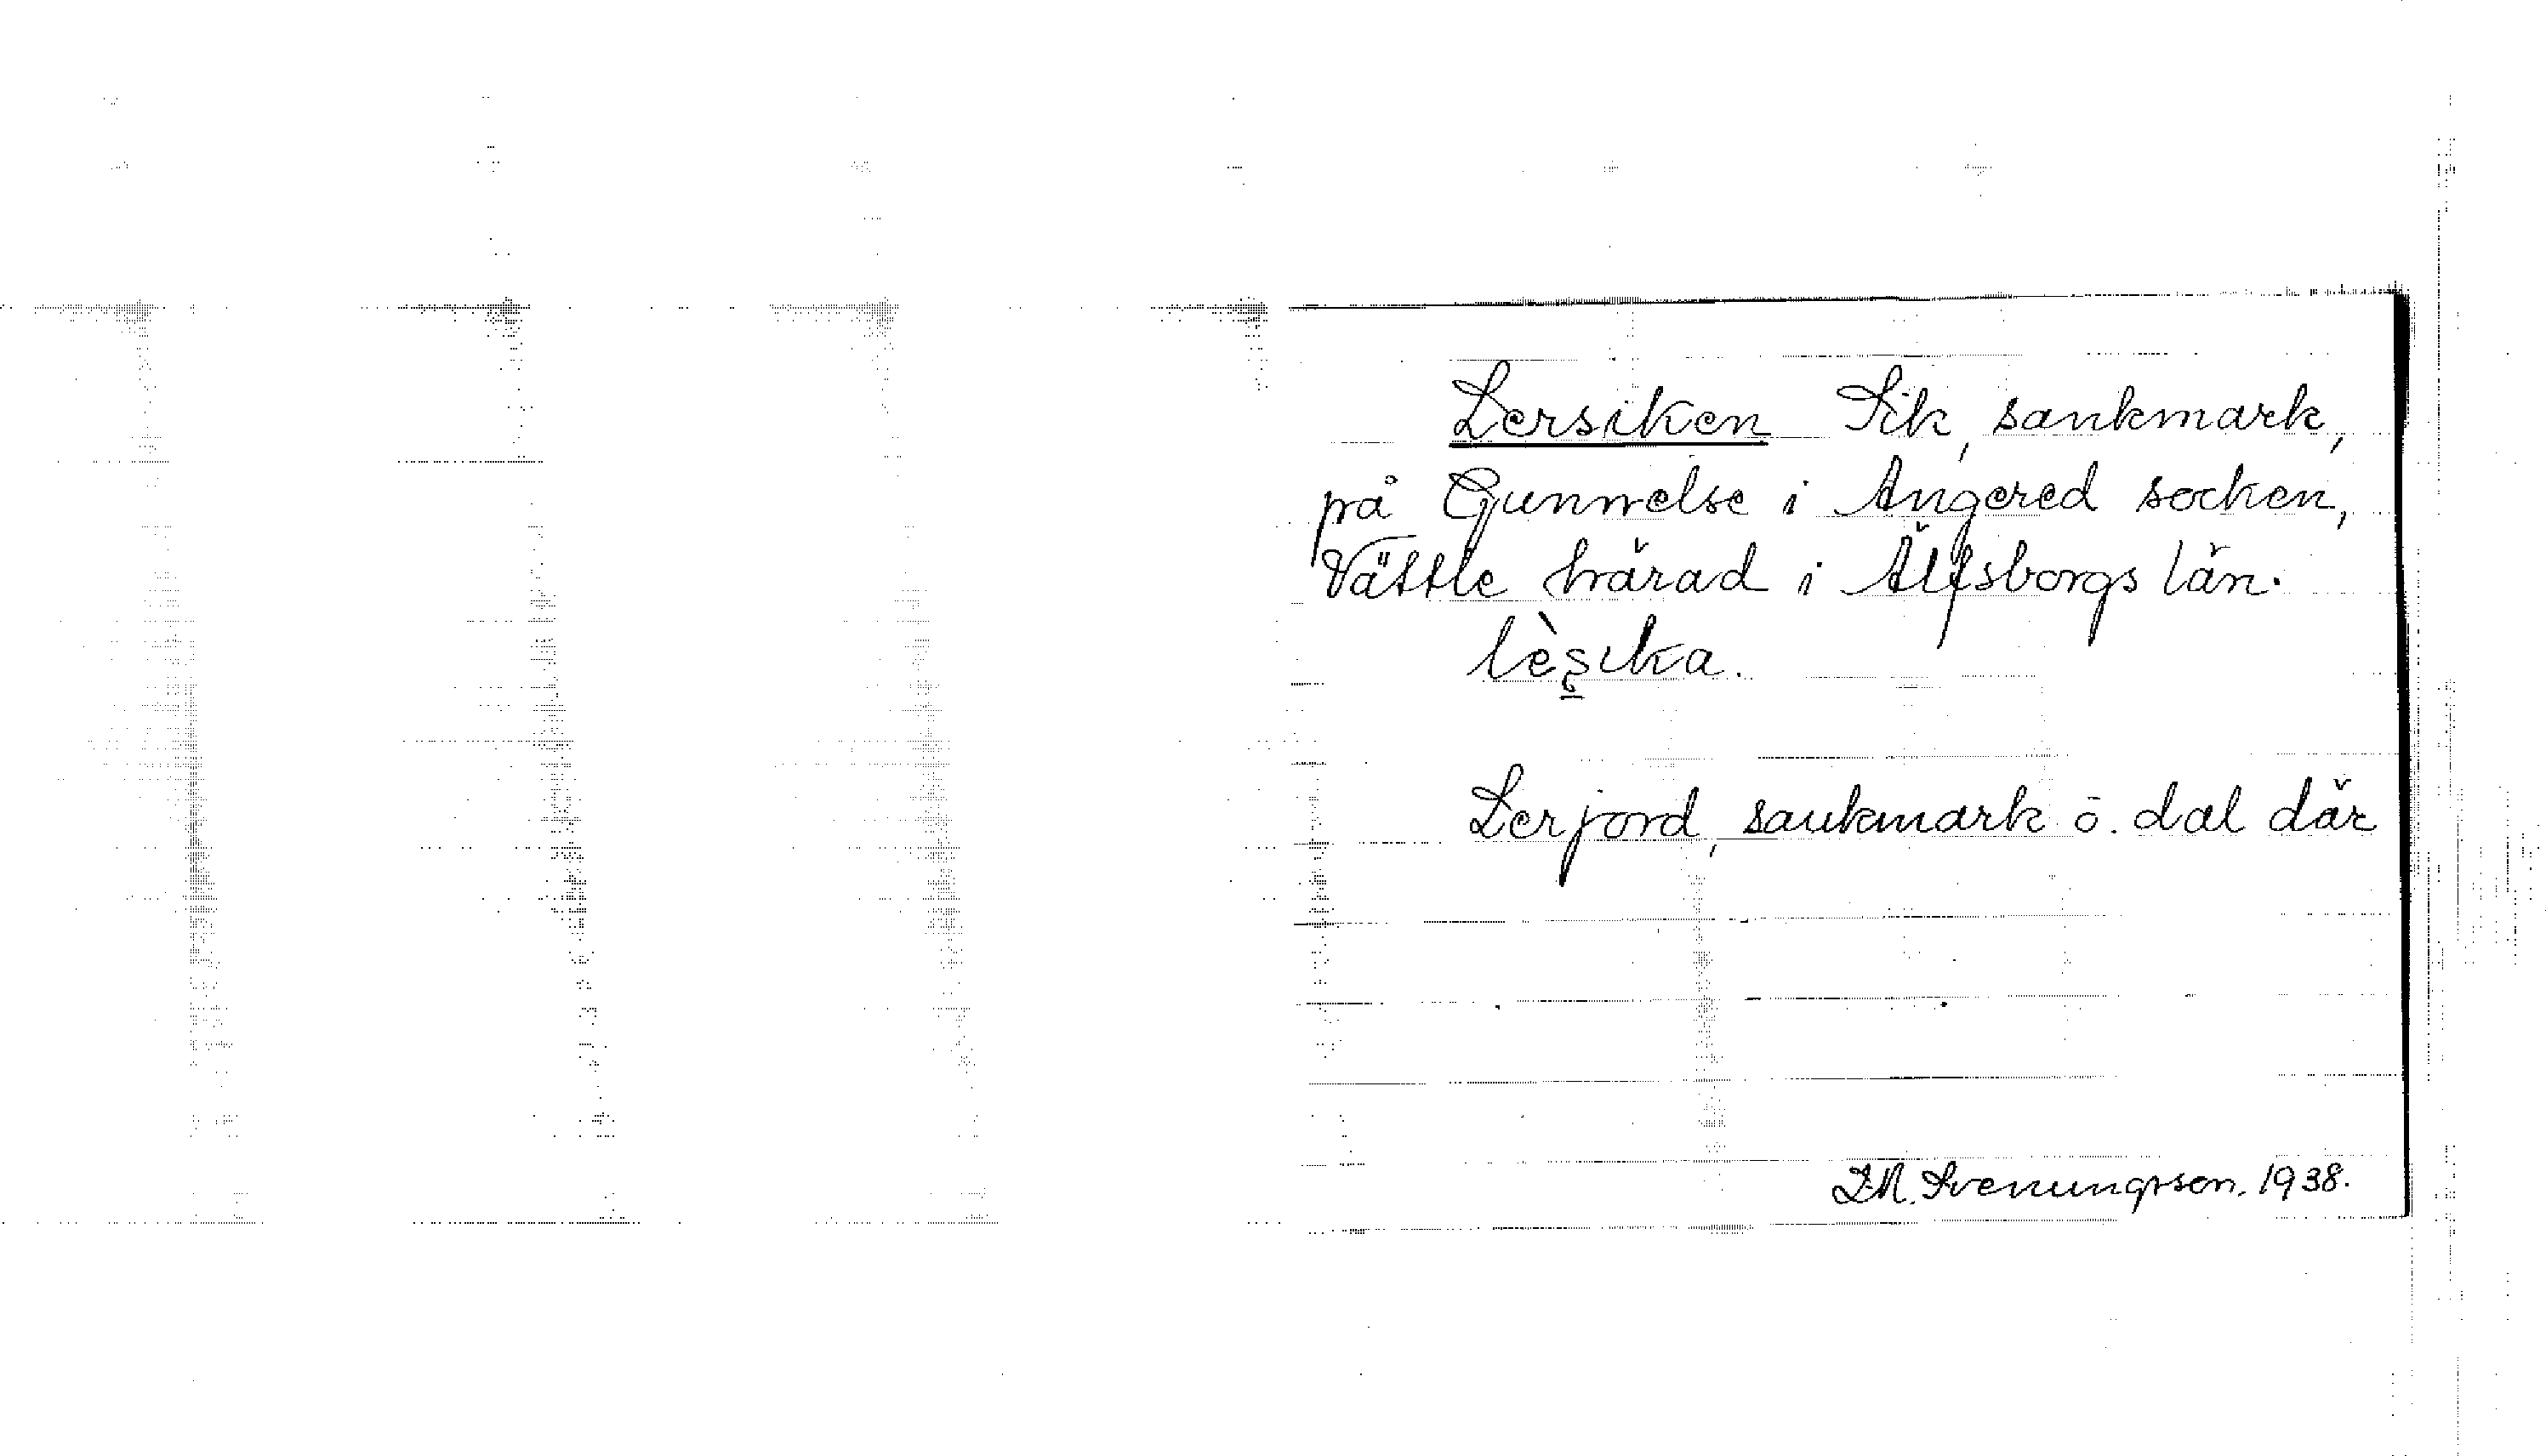 Lersiken Sik, sankmark,
på Gunnelse i Angered socken,
Vättle härad i Älfsborgs län.
lèşıka.
Lerjord, sankmark o. dal där
I. M. Svenungsson. 1938.